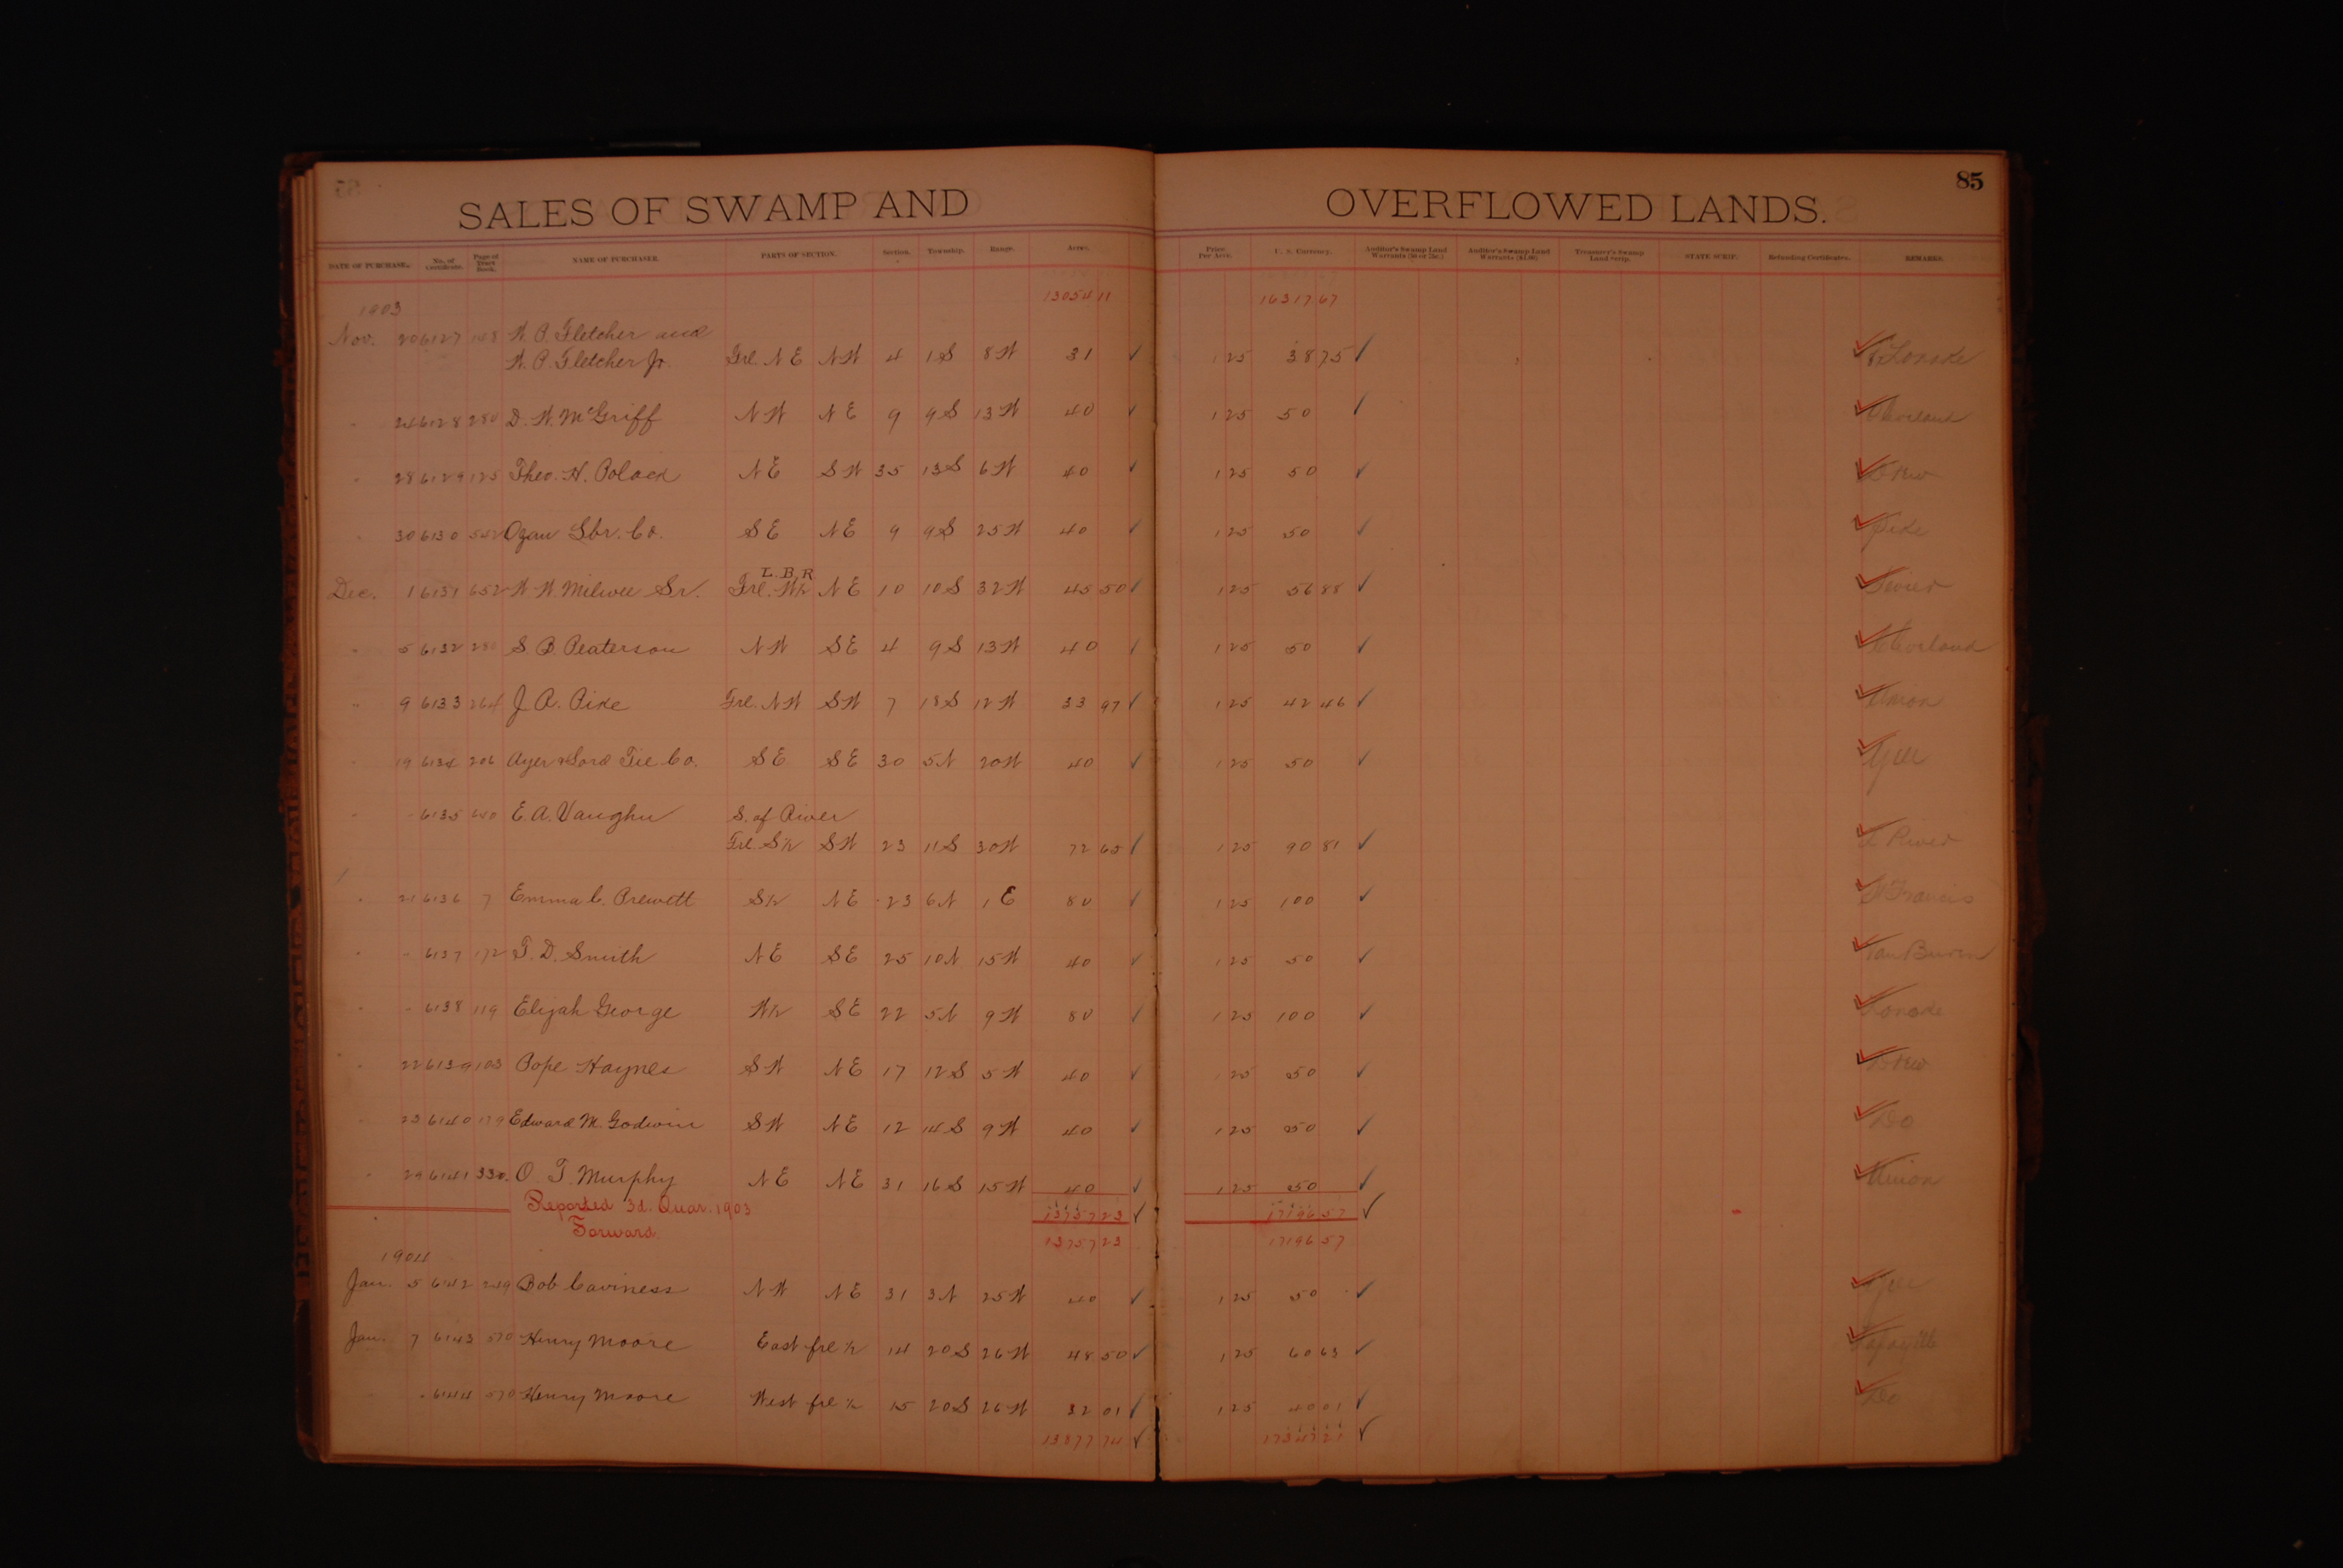 85
SALES OF SWAMP AND OVERFLOWED LANDS.
DATE OF PURCHASE. No. of Certificate. Page of Tract Book. NAME OF PURCHASER. PARTS OF SECTION. Section. Township. Range. Acres. Price Per Acre. U. S. Currency. Auditor's Swamp Land Warrants Auditor's Swamp Land Warrants Treasurer's Swamp Land Scrip. STATE SCRIP. Refunding Certificates. REMARKS.
13054 11 16317 67
1903
Nov. 20 6127 108 W. P. Fletcher and
W. P. Fletcher Jr. Frl. NE NW 4 1S 8W 31 ✓ 1 25 38 75 ✓ Lonoke
" 24 6128 280 D. W. McGriff NW NE 9 9S 13W 40 ✓ 1 25 50 ✓ Cleveland
" 28 6129 125 Theo. H. Polack NE SW 35 13S 6W 40 ✓ 1 25 50 ✓ Drew
" 30 6130 552 Ozan Lbr. Co. SE NE 9 9S 25W 40 ✓ 1 25 50 ✓ Pike
L. B. R
Dec. 1 6131 652 W. W. Milwee Sr. Frl. W½ NE 10 10S 32W 45 50 ✓ 1 25 56 88 ✓ Sevier
" 5 6132 280 S. B. Peaterson NW SE 4 9S 13W 40 ✓ 1 25 50 ✓ Cleveland
" 9 6133 264 J. A. Pike Frl. NW SW 7 18S 12W 33 97 ✓ 1 25 42 46 ✓ Union
" 19 6134 206 Ayer & Lord Tie Co. SE SE 30 5N 20W 40 ✓ 1 25 50 ✓ Yell
" " 6135 640 E. A. Vaughn S. of River
Frl. S½ SW 23 11S 30W 72 65 ✓ 1 25 90 81 ✓ L River
" 21 6136 7 Emma C. Prewett S½ NE 23 6N 1E 80 ✓ 1 25 100 ✓ St Francis
" " 6137 172 T. D. Smith NE SE 25 10N 15W 40 ✓ 1 25 50 ✓ Van Buren
" " 6138 119 Elijah George W½ SE 22 5N 9W 80 ✓ 1 25 100 ✓ Lonoke
" 22 6139 103 Pope Haynes SW NE 17 12S 5W 40 ✓ 1 25 50 ✓ Drew
" 23 6140 179 Edward M. Godwin SW NE 12 14S 9W 40 ✓ 1 25 50 ✓ Do
" 29 6141 330. O. T. Murphy NE NE 31 16S 15W 40 ✓ 1 25 50 ✓ Union
Reported 3d. Quar. 1903 13757 23 ✓ 17196 57 ✓
Forward. 13757 23 17196 57
1904
Jan. 5 6142 249 Bob Caviness NW NE 31 3N 25W 40 ✓ 1 25 50 ✓ Yell
Jan. 7 6143 570 Henry Moore East frl ½ 14 20S 26W 48 50 ✓ 1 25 60 63 ✓ Lafayette
" 6144 570 Henry Moore West frl ½ 15 20S 26W 32 01 ✓ 1 25 40 01 ✓ Do
13877 74 ✓ 17347 21 ✓